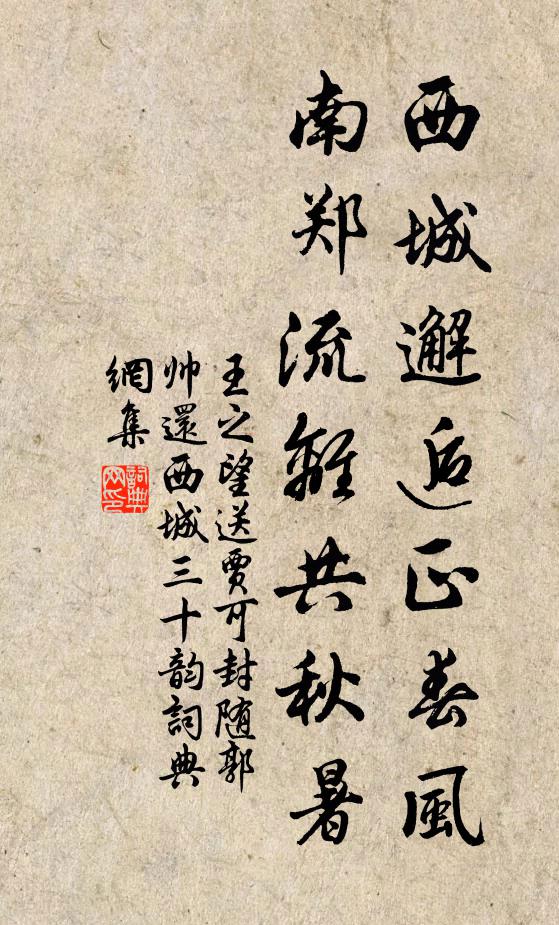 西城邂逅正春風
南郑流離共秋暑
王之望送賈可封随郭
帅還西城三十韵詞典
網集
詞典
网印